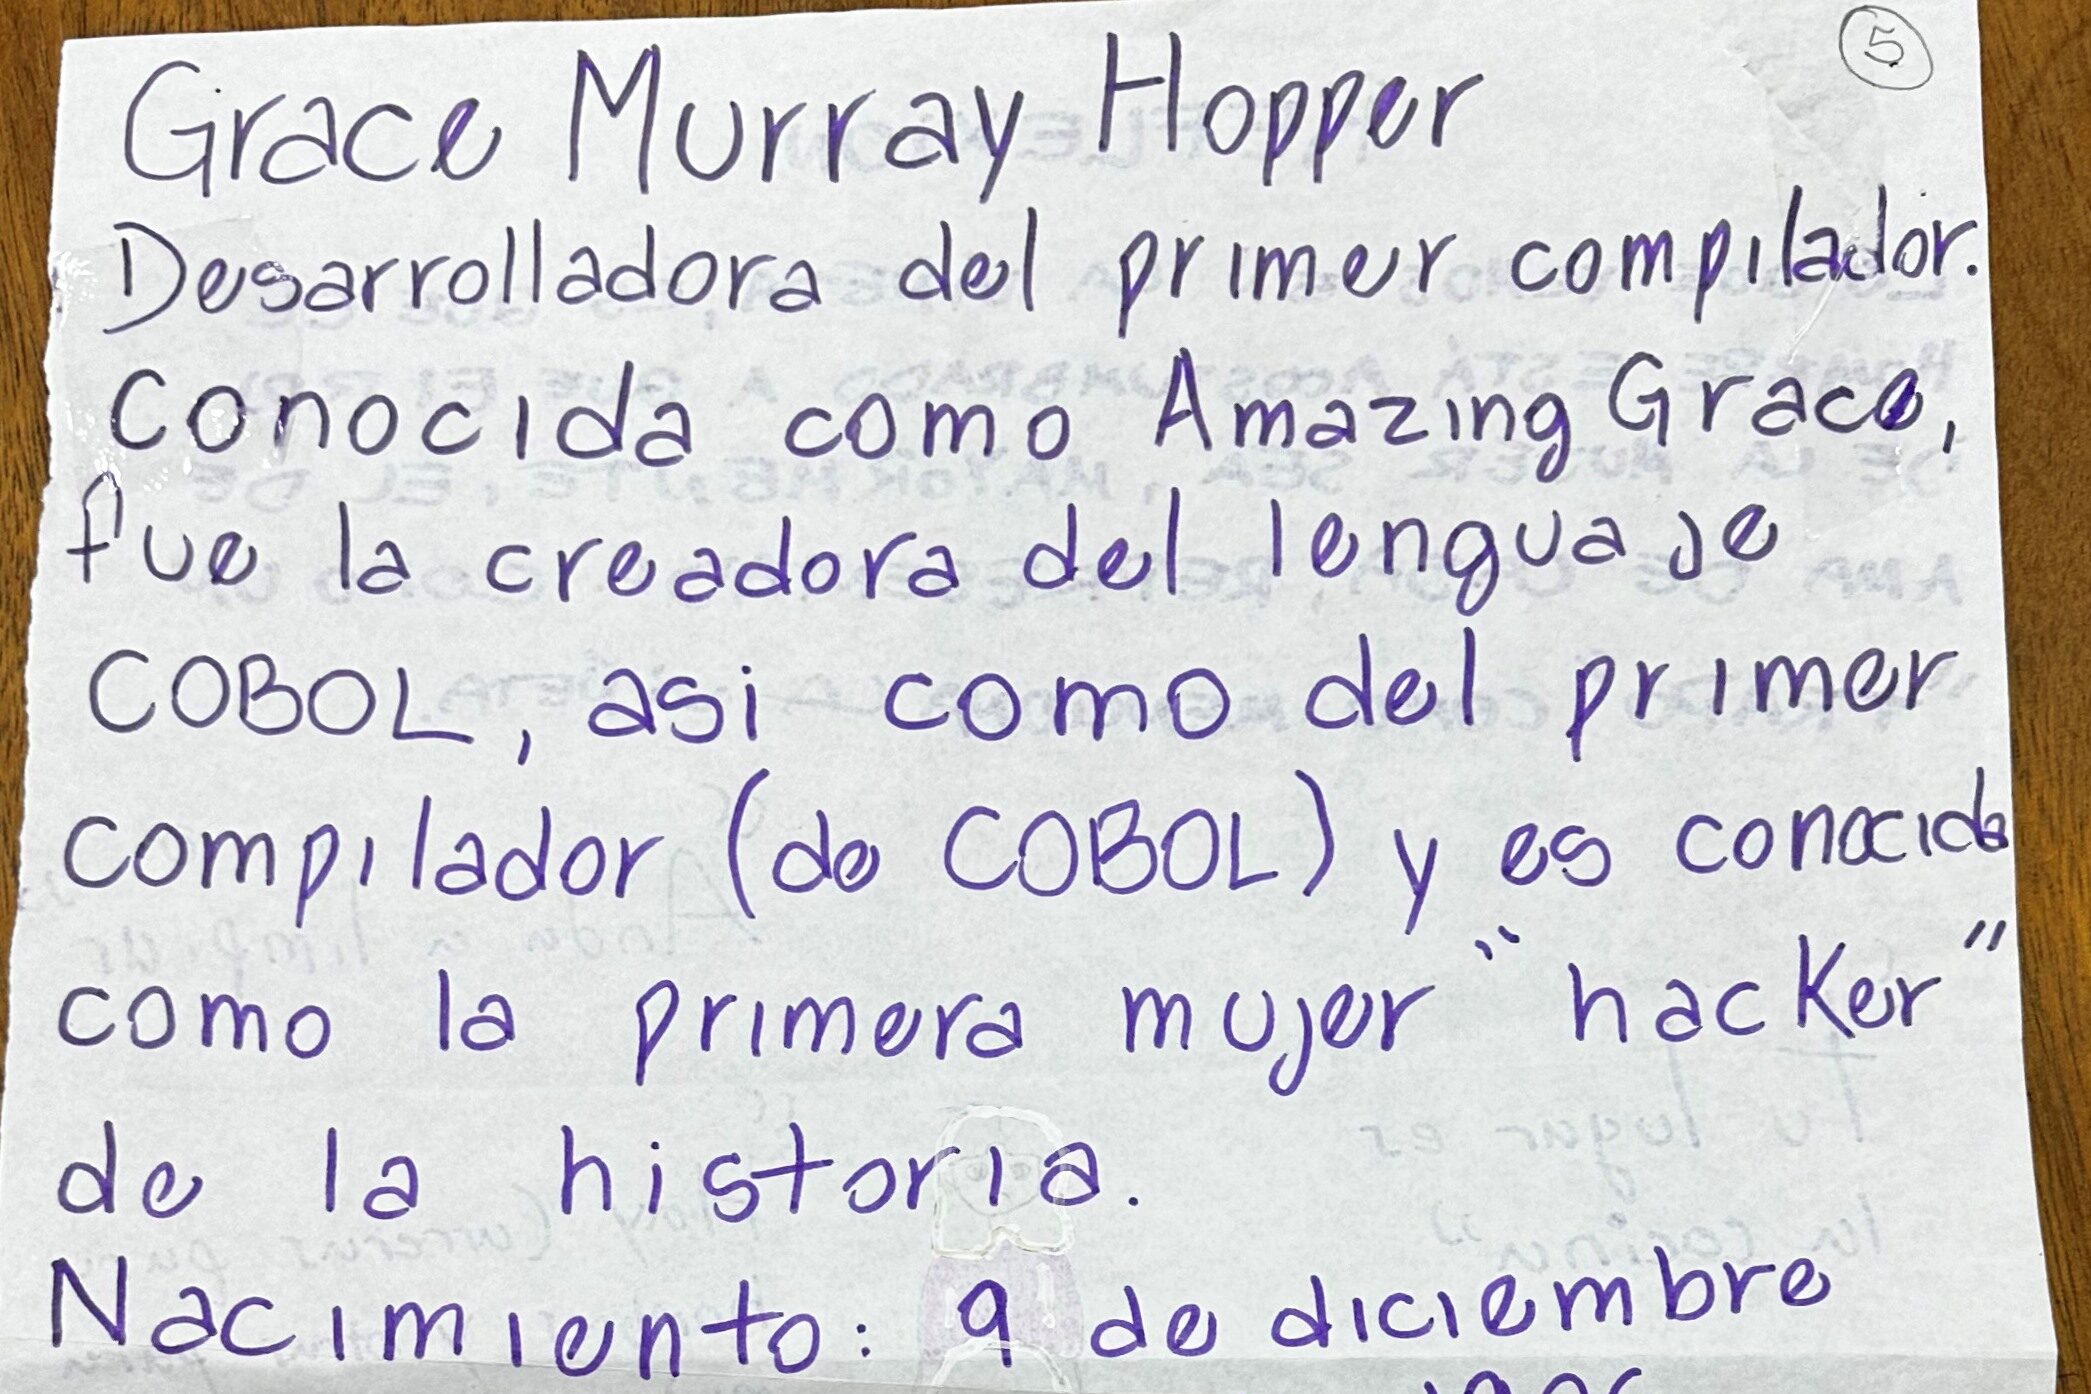 5
Grace Murray Hopper
Desarrolladora del primer compilador.
Conocida como Amazing Grace,
fue la creadora del lenguaje
COBOL, asi como del primer
compilador (de COBOL) y es conocida
como la primera mujer "hacker"
de la historia.
Nacimiento: 9 de diciembre